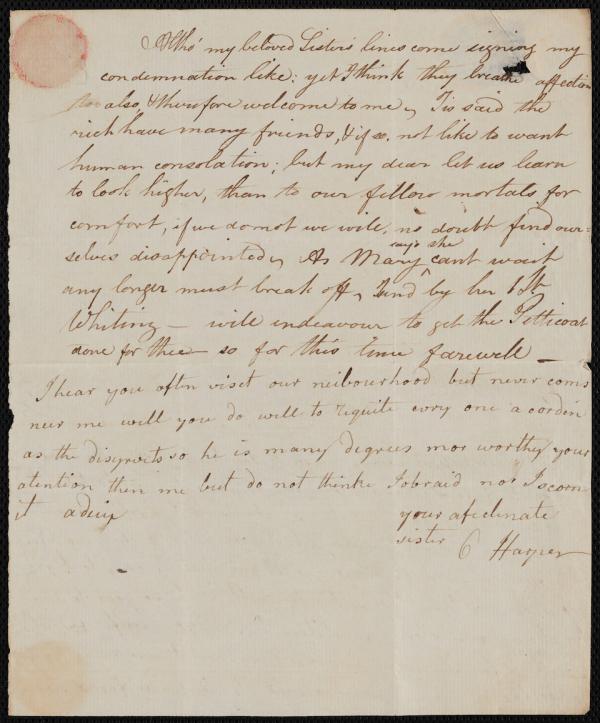 Altho' my beloved Sister's lines come signing my
condemnation like: yet I think they breathe affection
also, & therefore welcome to me, Tis said the
rich have many friends, & if so. not like to want
human consolation; but my dear let us learn
to look higher, than to our fellow mortals for
comfort, if we do not we will, no doubt find our=
selves disappointed, As Mary says she cant wait
any longer must break off, Send by her 1 lb
Whiting — will endeavour to get the Petticoat
done for thee — so for this time farewell —
I hear you aftn viset our neibourhood but never coms
neer me well you do well to requite evry one a cordin
as the disyrvits so he is many degrees mor worthy your
atention then me but do not thinke I obraid nor I scorn
it adieu
your afectinate
sister C Harper